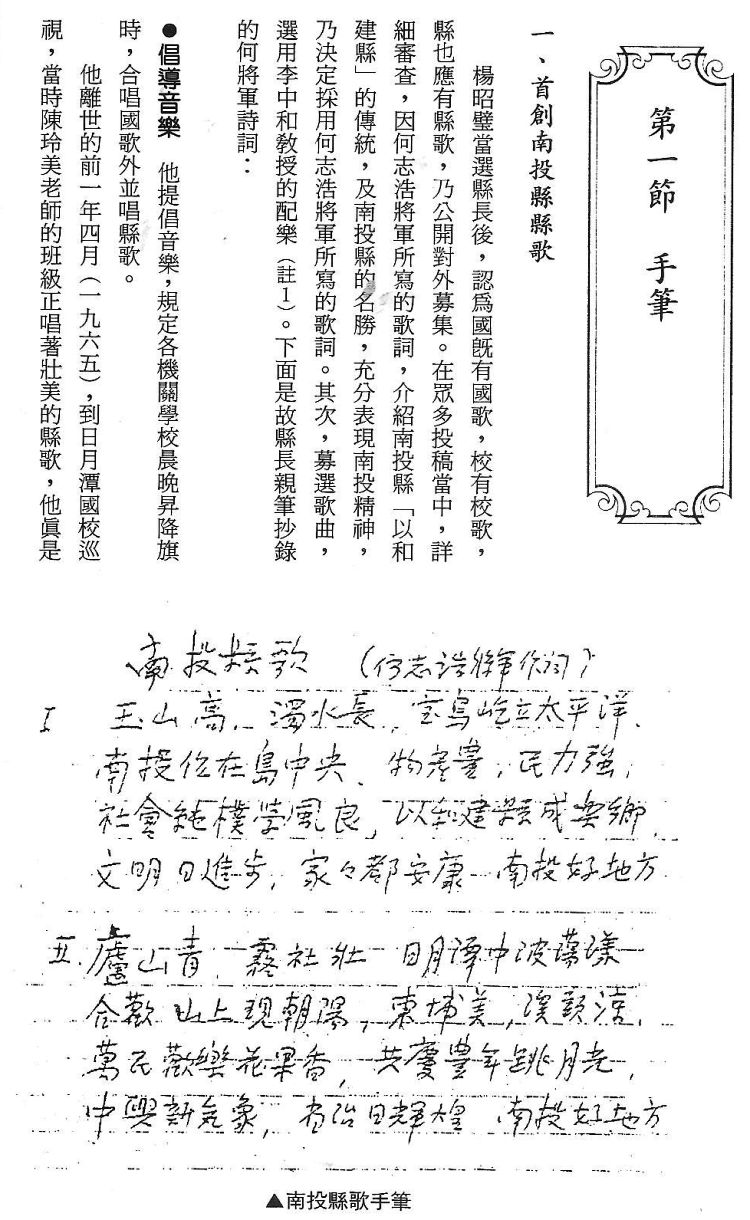 第一節　手筆
一、首創南投縣縣歌
楊昭璧當選縣長後，認為國既有國歌，校有校歌，
縣也應有縣歌，乃公開對外募集。在眾多投稿當中，詳
細審查，因何志浩將軍所寫的歌詞，介紹南投縣「以和
建縣」的傳統，及南投縣的名勝，充分表現南投精神，
乃決定採用何志浩將軍所寫的歌詞。其次，募選歌曲，
選用李中和教授的配樂（註1）。下面是故縣長親筆抄錄
的何將軍詩詞：
●倡導音樂　他提倡音樂，規定各機關學校晨晚昇降旗
時，合唱國歌外並唱縣歌。
他離世的前一年四月（一九六五），到日月潭國校巡
視，當時陳玲美老師的班級正唱著壯美的縣歌，他眞是
南投縣歌　（何志浩將軍作詞）
I　玉山高、濁水長，宝島屹立太平洋、
南投位在島中央、物產豊，民力強，
社會純樸學風良，以和建縣成樂鄉，
文明日進步，家々都安康　南投好地方
II.　廬山青　霧社壯　日月潭中波蕩漾
合歡山上現朝陽，東埔美，溪頭涼，
萬民歡樂花果香，共慶豐年跳月光，
中興新氣象，省治日輝煌　南投好地方
▲南投縣歌手筆